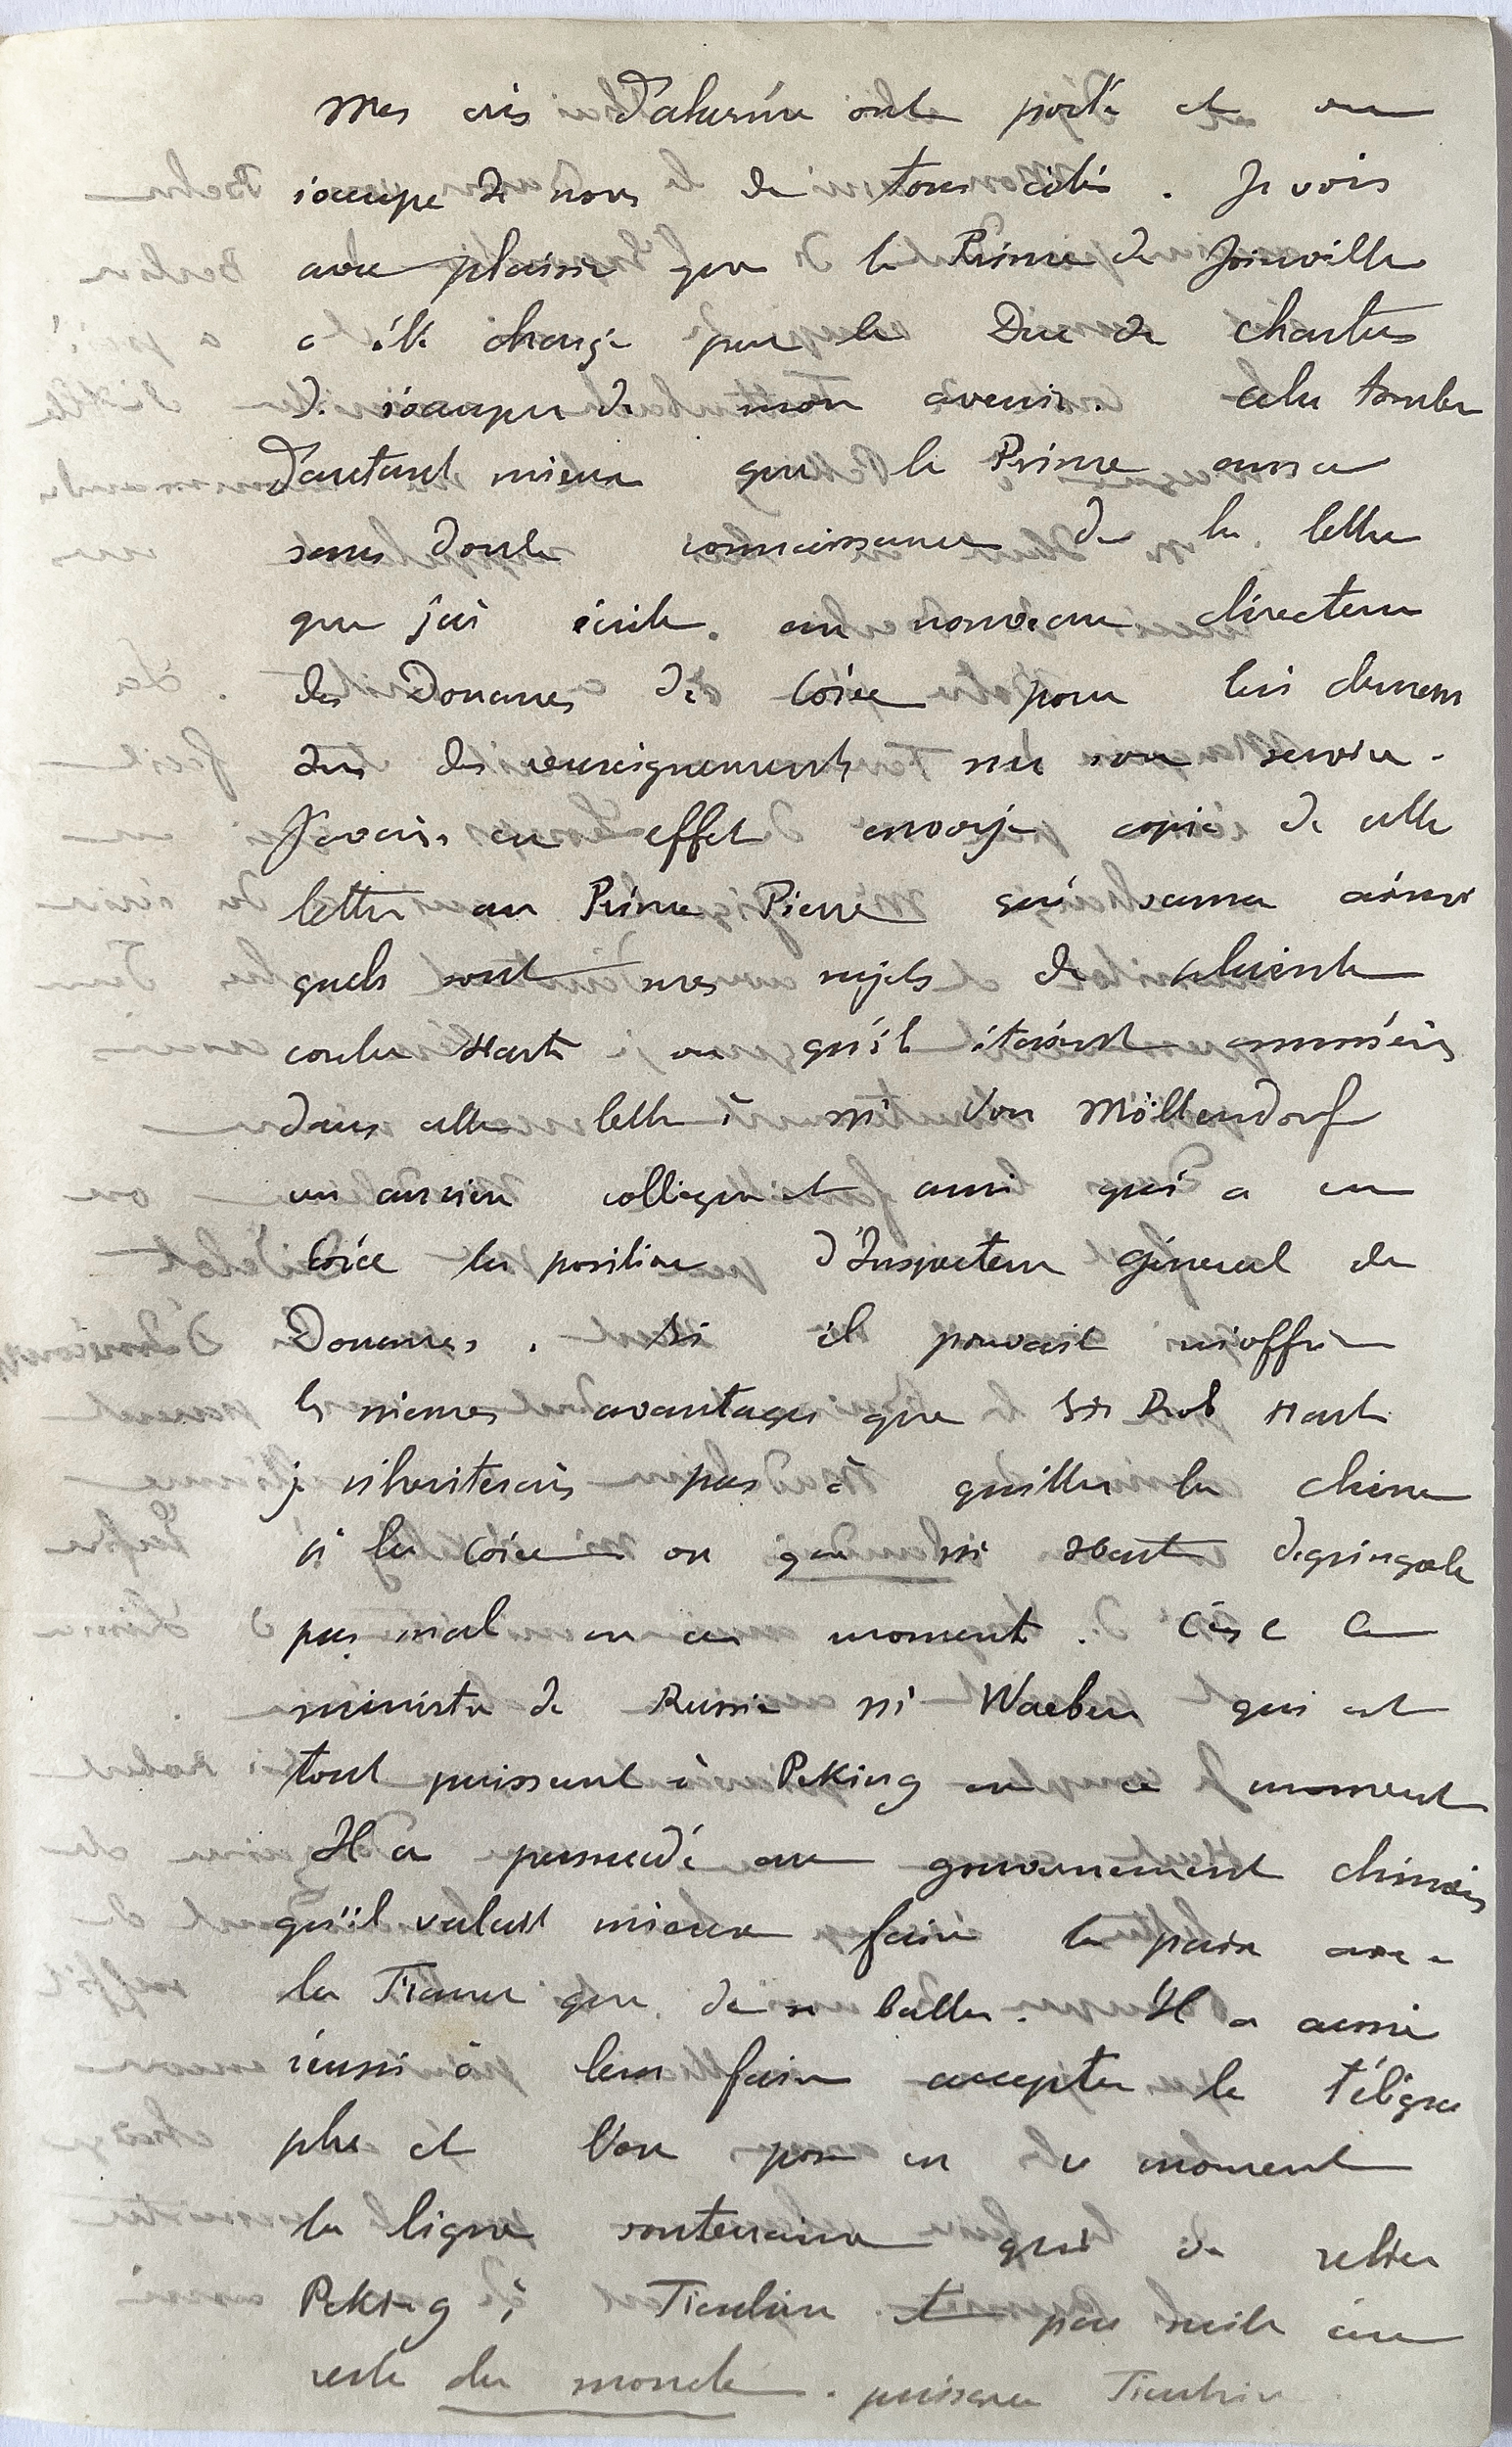 Mes cris d'alarme ont porté et on
s'occupe de nous de tous côtés. Je vois
avec plaisir que le Prince de Joinville
a été chargé par le Duc de Chartres
de s'occuper de mon avenir. Cela tombe
d'autant mieux que le Prince aura eu
sans doute connaissance de la lettre
que j'ai écrite au nouveau directeur
des Douanes de Corée pour lui deman
der des renseignements sur son service.
J'avais en effet envoyé copie de cette
lettre au Prince Pierre qui saura ainsi
quels sont mes sujets de plainte
contre Hart, vu qu'ils étaient
dans cette lettre à Mr Von Möllendorf
un ancien collègue et ami qui a en
Corée la position d'Inspecteur Général de
Douanes. Si il pouvait m'offrir
les mêmes avantages que Sir Rob Hart
je n'hésiterais pas à quitter la Chine
p' la Corée vu que Mr Hart dégringole
pas mal en ce moment. C'est le
ministre de Russie Mr Waeber qui est
tout puissant à Peking en ce moment
Il a persuadé au gouvernement chinois
qu'il valait mieux faire la paix avec
la France que de se battre. Il a aussi
réussi à leur faire accepter le télégra
phe et l'on pose en ce moment
la ligne souterraine qui doit relier
Peking à Tientsin et par suite au
reste du monde. puisque Tientsin